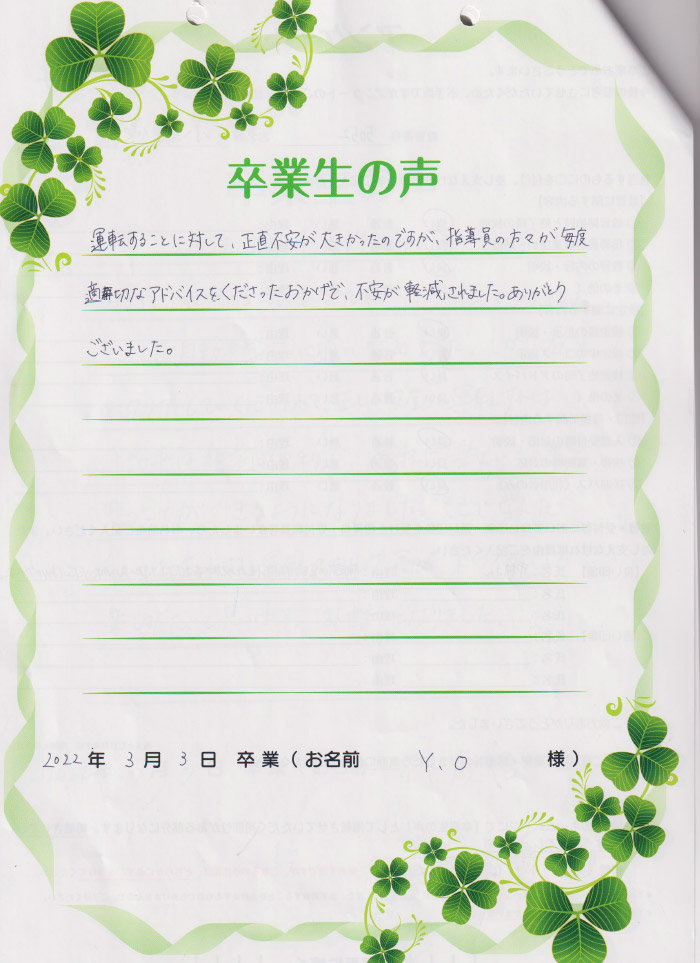 卒業生の声
運転することに対して、正直不安が大きかったのですが、指導員の方々が毎度
適切なアドバイスをくださったおかげで、不安が軽減されました。ありがとう
ございました。
2022年 3月 3日 卒業(お名前 Y.O 様)